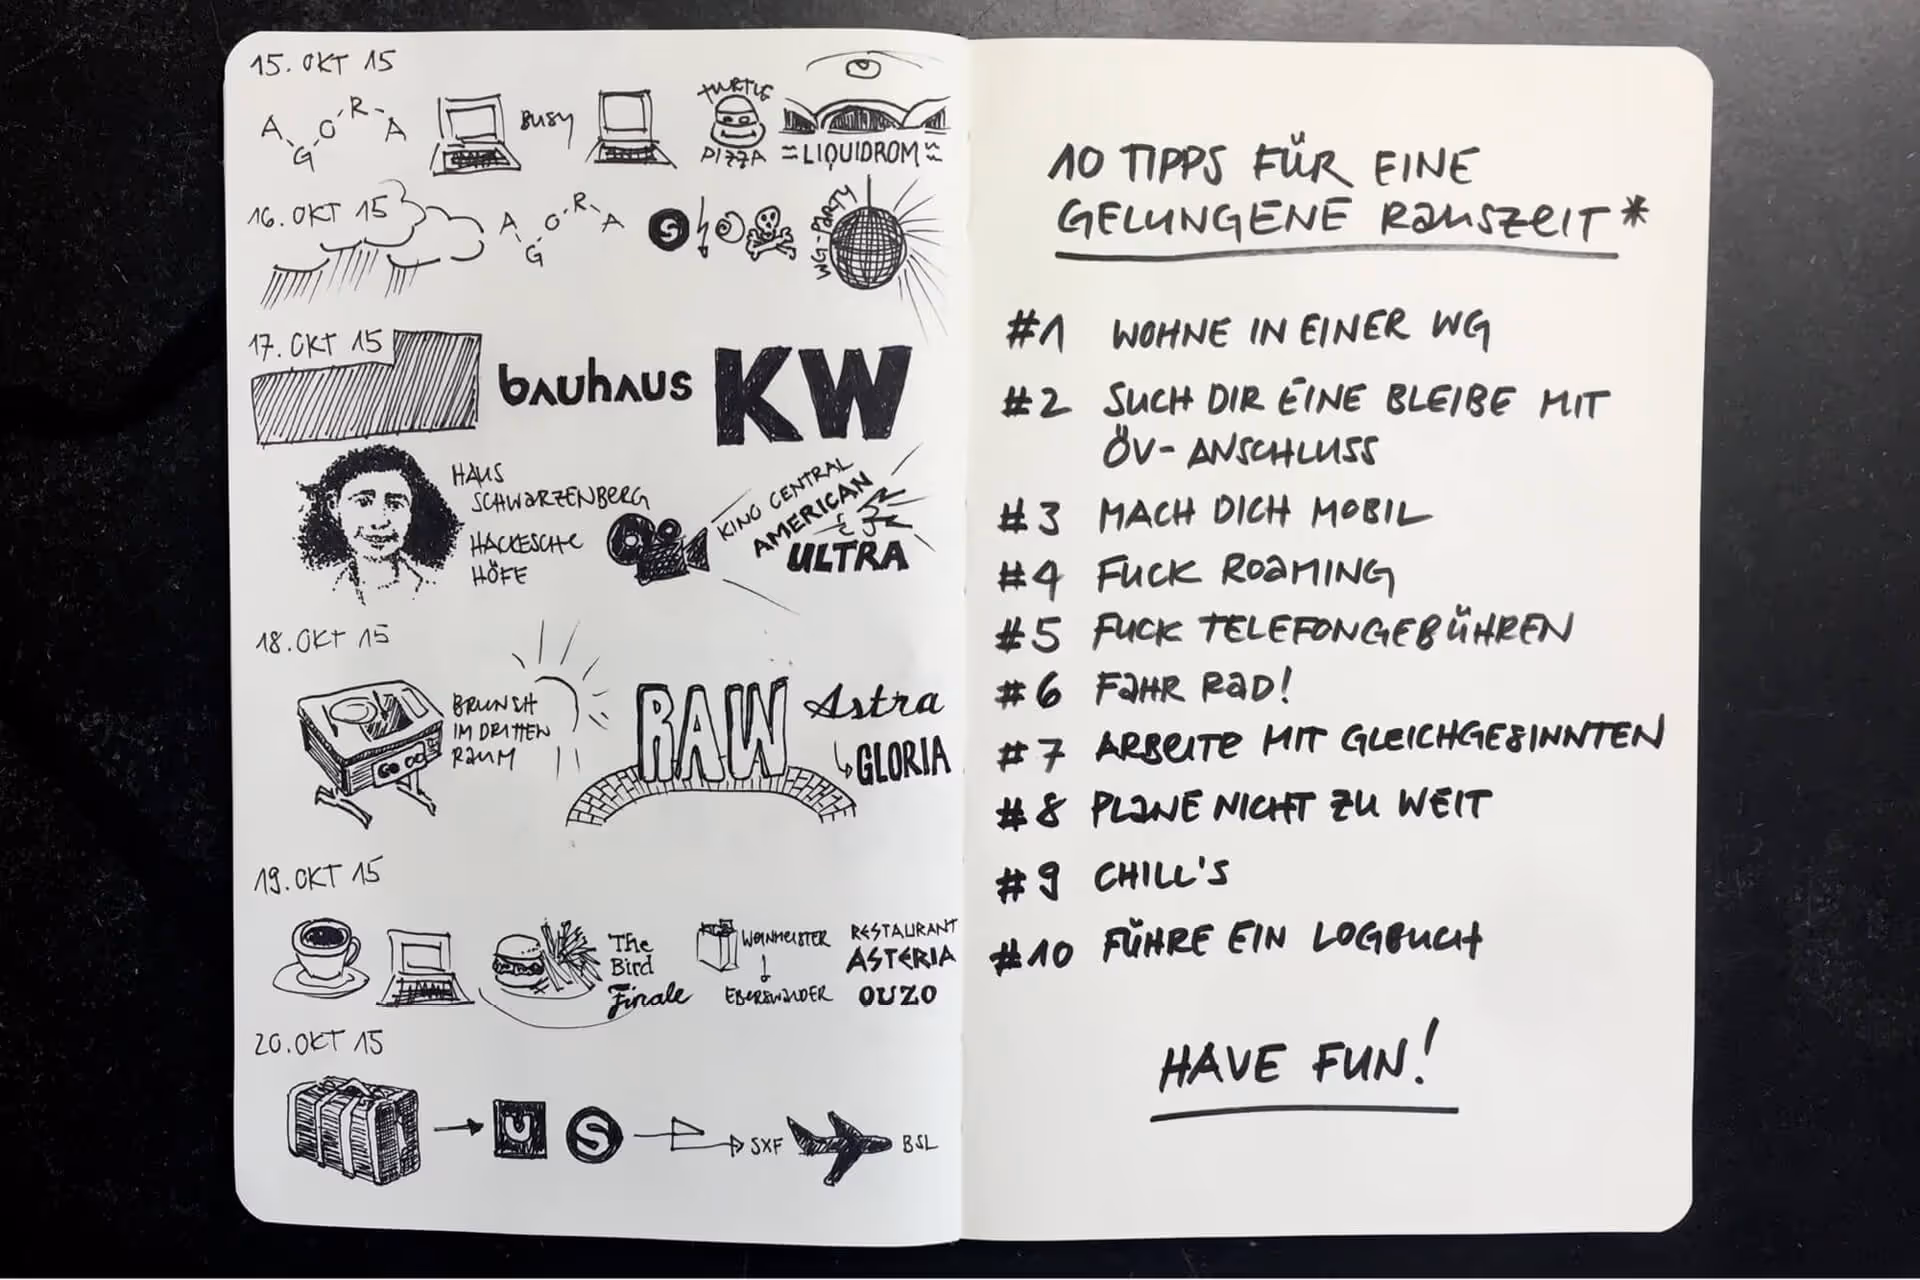 15. OKT 15
AGORA
BUSY
TURTLE
PIZZA
≈LIQUIDROM≈
16. OKT 15
AGORA
S
WG-PARTY
17. OKT 15
bauhaus
KW
HAUS
SCHWARZENBERG
HACKESCHE
HÖFE
KING CENTRAL
AMERICAN
ULTRA
18. OKT 15
BRUNCH
IM DRITTEN
RAUM
RAW
Astra
GLORIA
19. OKT 15
The
Bird
Finale
WEINMEISTER
EBERSWALDER
RESTAURANT
ASTERIA
OUZO
20. OKT 15
U S SXF BSL
10 TIPPS FÜR EINE
GELUNGENE RAUSZEIT*
#1 WOHNE IN EINER WG
#2 SUCH DIR EINE BLEIBE MIT
ÖV-ANSCHLUSS
#3 MACH DICH MOBIL
#4 FUCK ROAMING
#5 FUCK TELEFONGEBÜHREN
#6 FAHR RAD!
#7 ARBEITE MIT GLEICHGESINNTEN
#8 PLANE NICHT ZU WEIT
#9 CHILL'S
#10 FÜHRE EIN LOGBUCH
HAVE FUN!